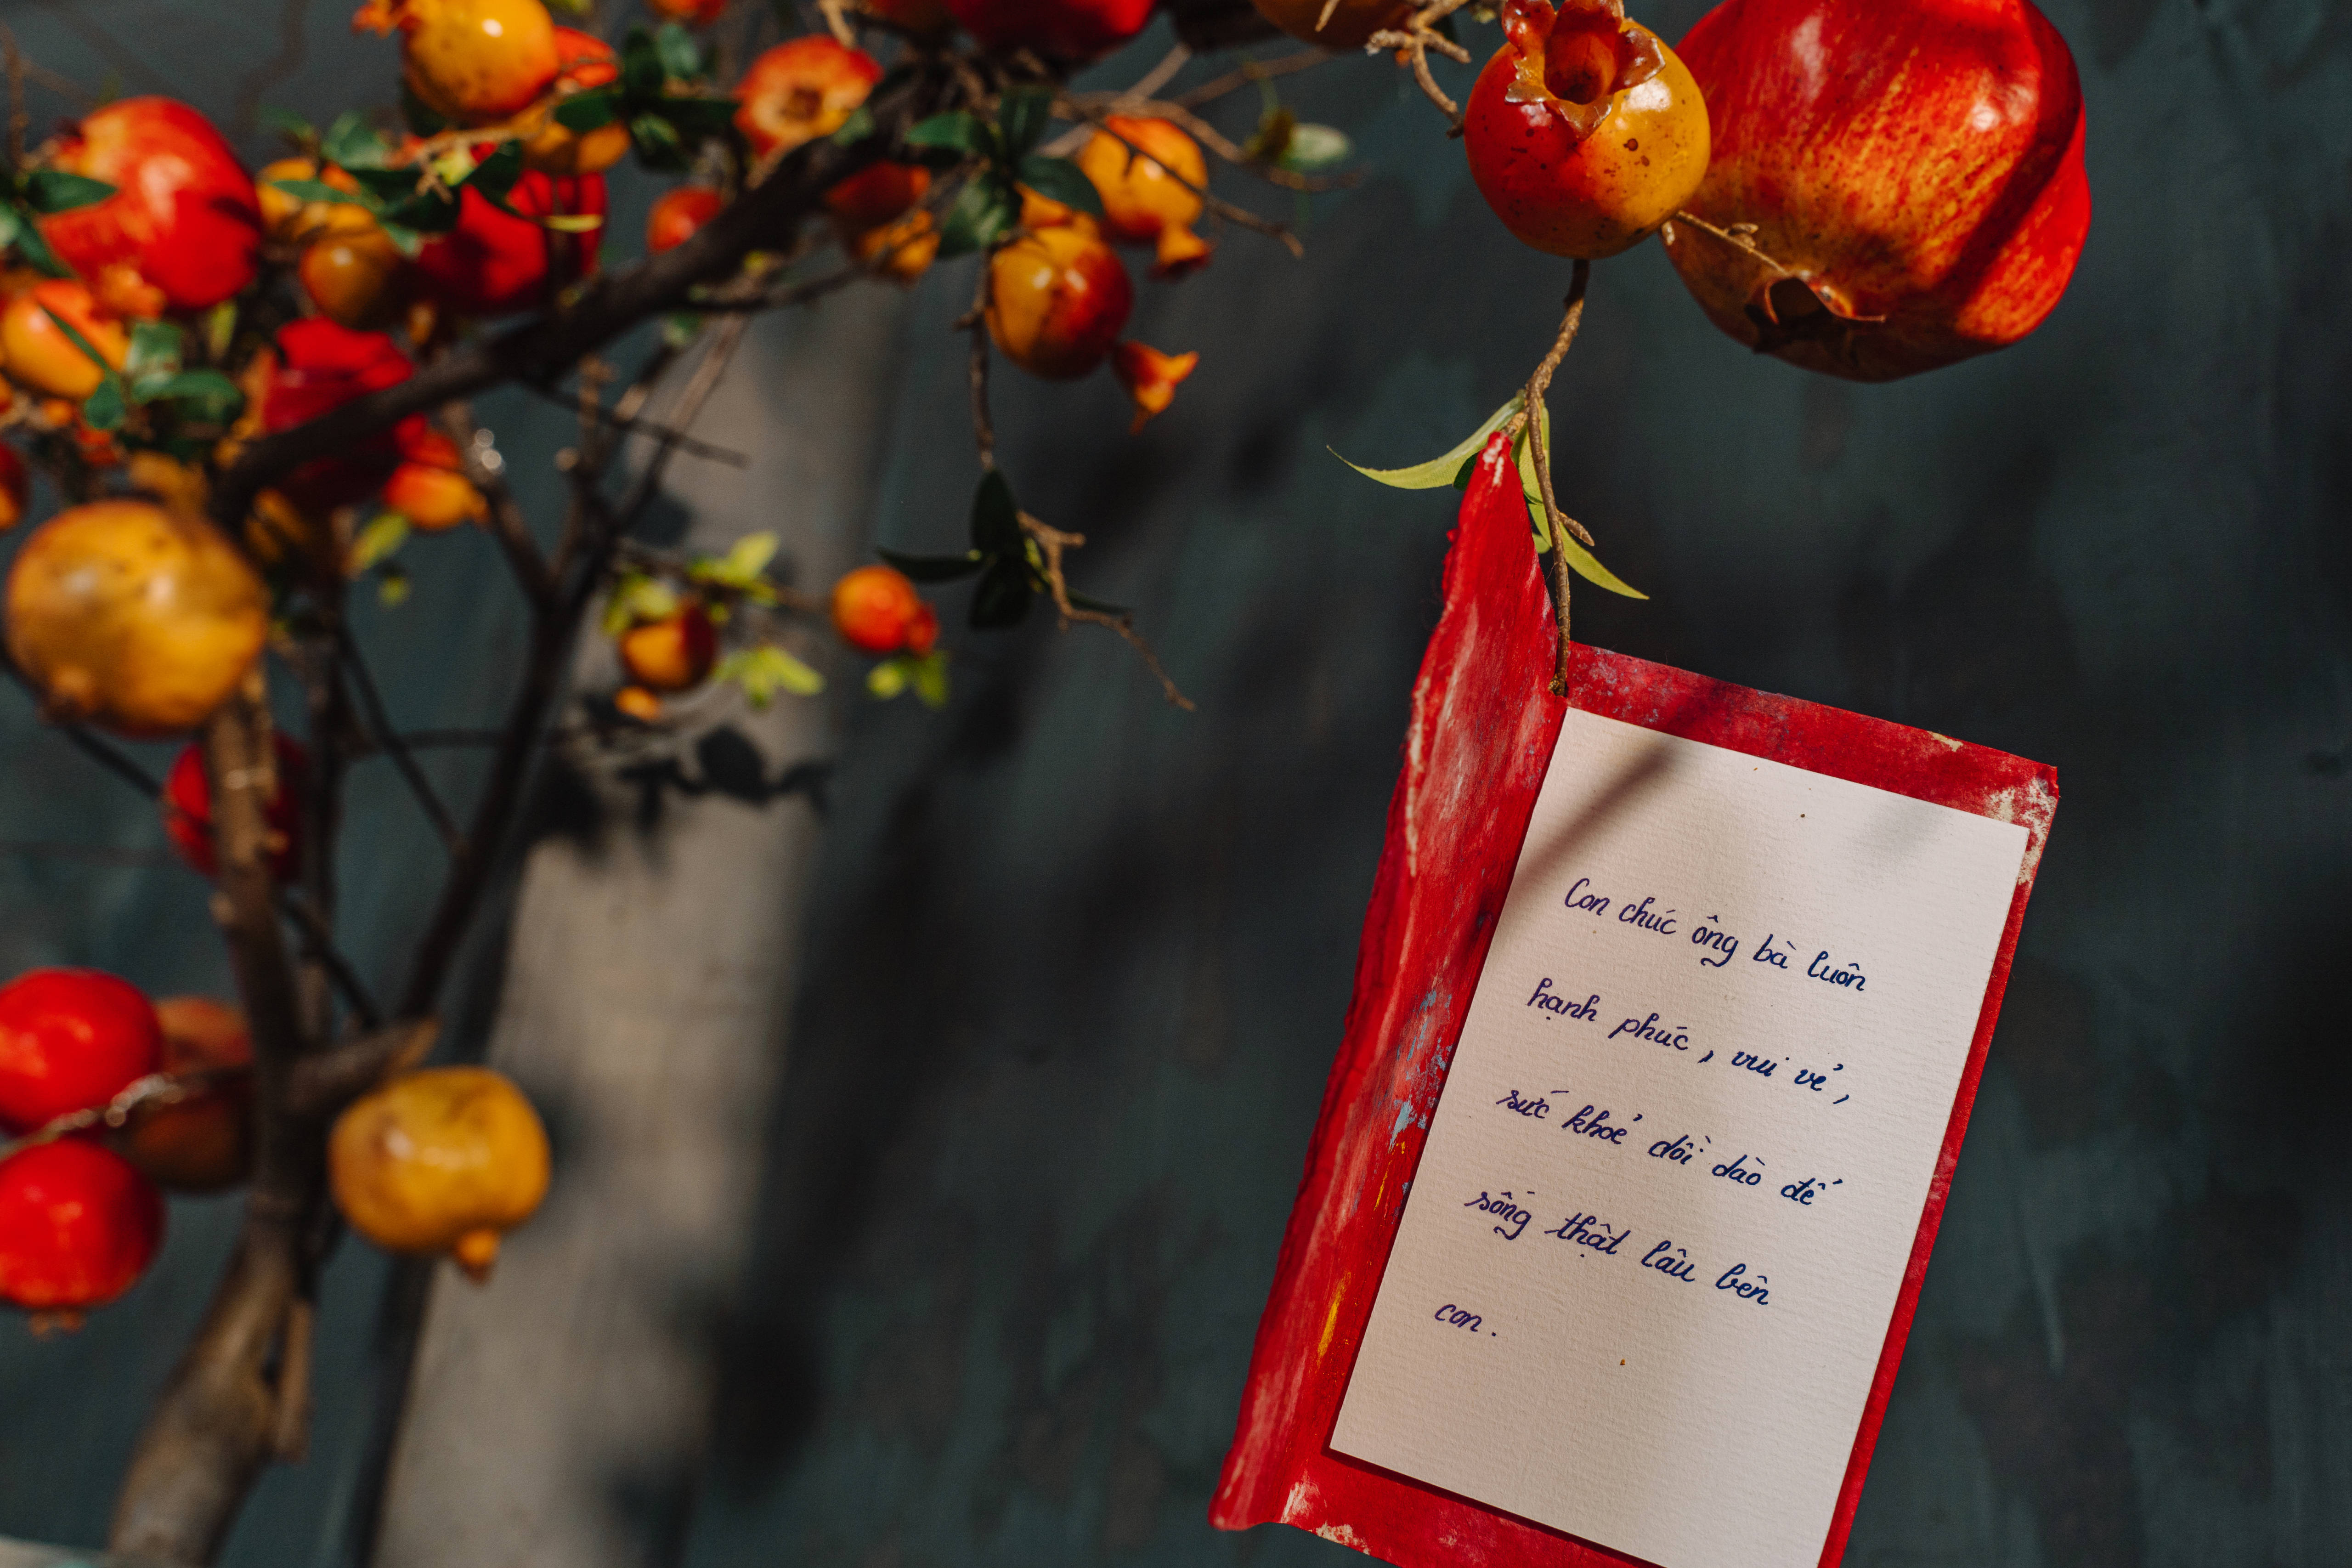 Con chúc ông bà luôn
hạnh phúc, vui vẻ,
sức khoẻ dồi dào để
sống thật lâu bên
con.